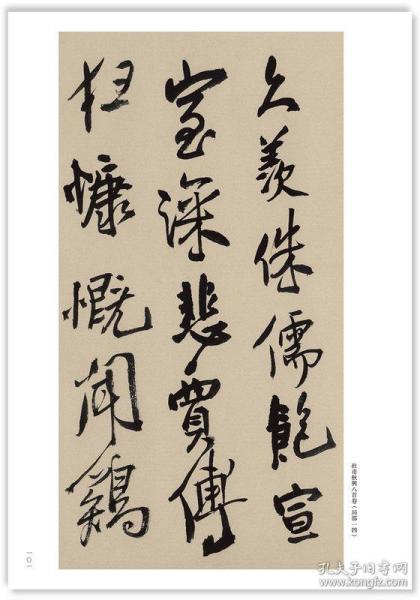 久羨侏儒飽宣
室深悲賈傅
狂慷慨聞鷄
杜甫秋興八首卷（局部一四）
一〇一
孔夫子旧书网